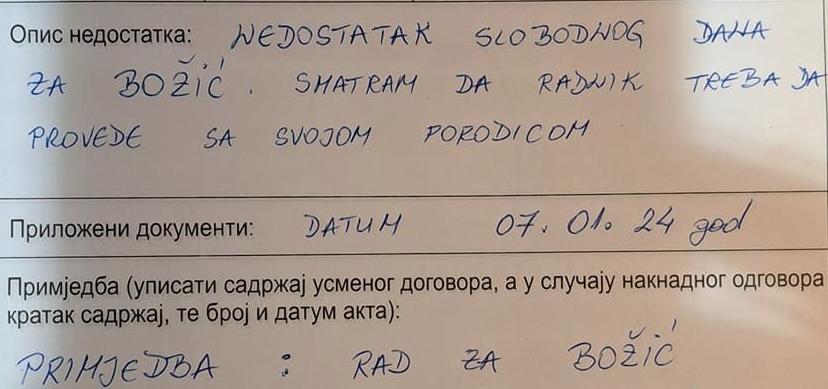 Опис недостатка: NEDOSTATAK SLOBODNOG DANA
ZA BOŽIĆ. SMATRAM DA RADNIK TREBA DA
PROVEDE SA SVOJOM PORODICOM
Приложени документи: DATUM 07. 01. 24 god
Примједба (уписати садржај усменог договора, а у случају накнадног одговора
кратак садржај, те број и датум акта):
PRIMJEDBA : RAD ZA BOŽIĆ